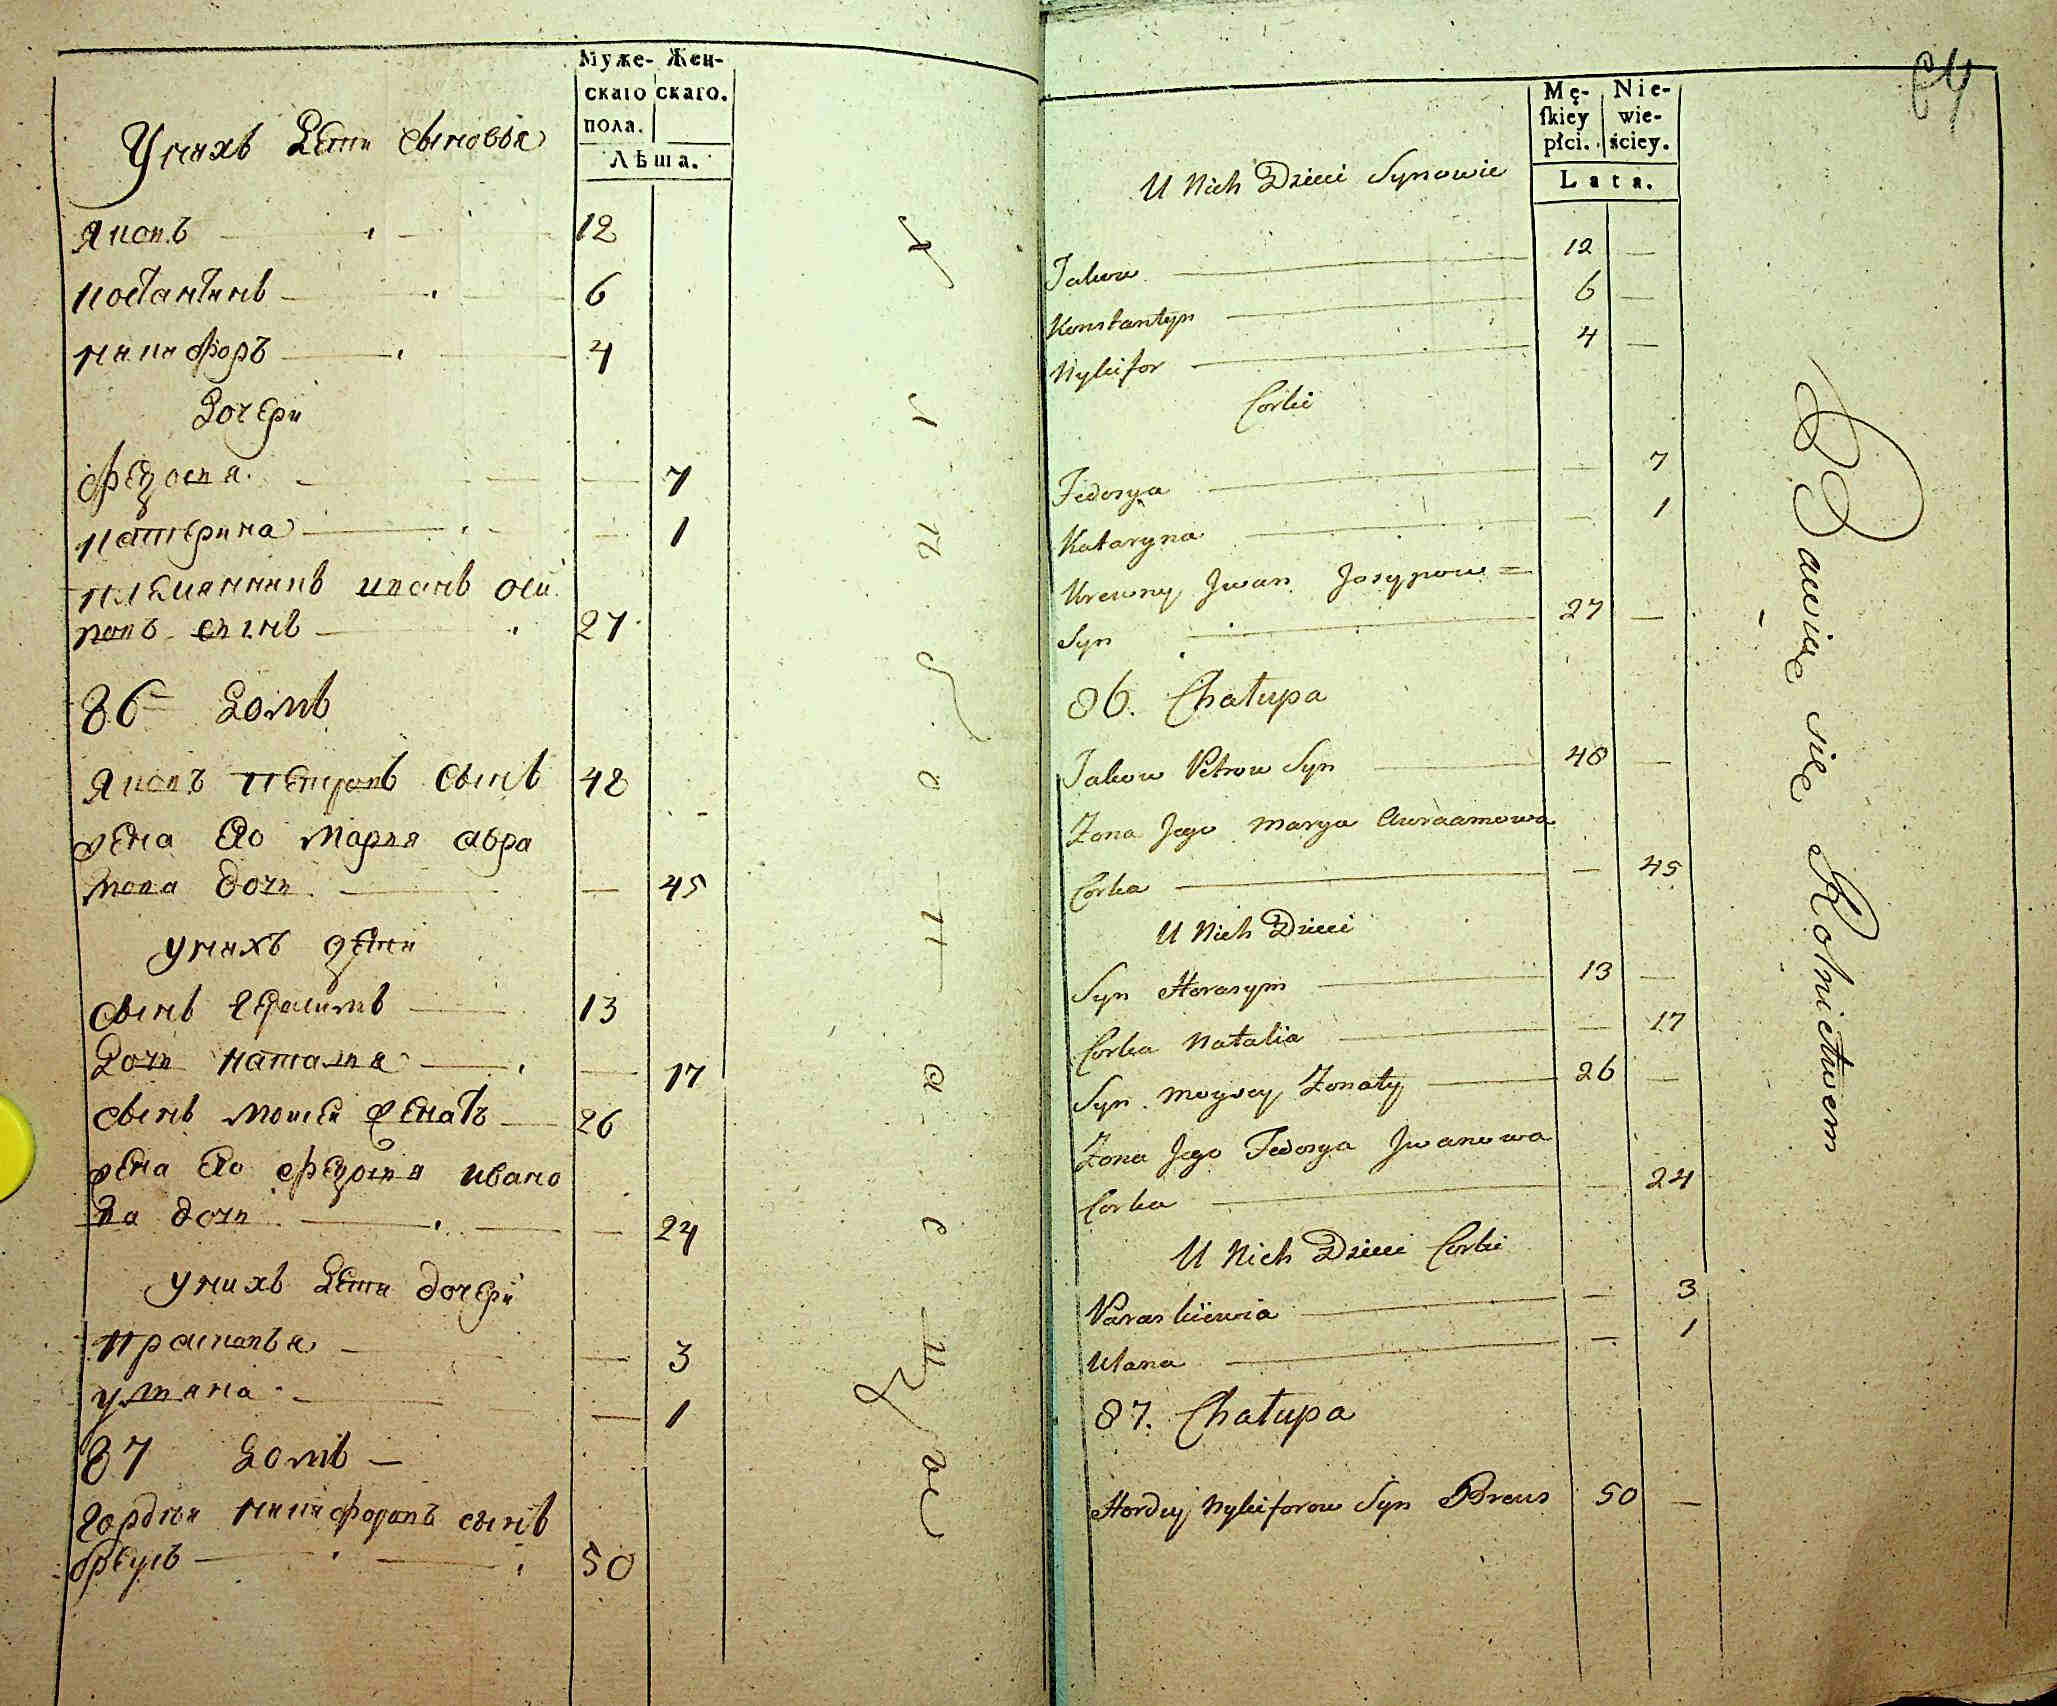 Муже- Жен-
скаго скаго.
пола.
Лѣта.
У нихъ Дети сыновья
Яковъ 12
Костантинъ 6
Никифоръ 4
Дочери
Федосия 7
Катерина 1
племянникъ иванъ оси
повъ сынъ 27
86 Домъ
Яковъ Петровъ Сынъ 48
жена Его Мария авра
мова дочь 45
у нихъ дети
Сынъ Герасимъ 13
Дочь Наталия 17
Сынъ Моисей женатъ 26
жена Его Федосия ивано
ва дочь 24
у нихъ Дети дочери
Прасковья 3
улияна 1
87 Домъ
Гордий Никифоровъ сынъ
бреусъ 50
64
Mę- Nie-
skiey wie-
płci. ściey.
Lata.
U Nich Dzieci Synowie
Jakow 12
Konstantyn 6
Nykifor 4
Corki
Fedosya 7
Kataryna 1
Krewny Jwan Josypow=
Syn 27
86. Chałupa
Jakow Petrow Syn 48
Zona Jego Marya Awraamowa
Corka 45
U Nich Dzieci
Syn Harasym 13
Corka Natalia 17
Syn Moysey Zonaty 26
Zona Jego Fedosya Jwanowa
Corka 24
U Nich Dzieci Corki
Paraskiewia 3
Ulana 1
87. Chałupa
Hordey Nykiforow Syn Breus 50
Bawią się Rolnictwem